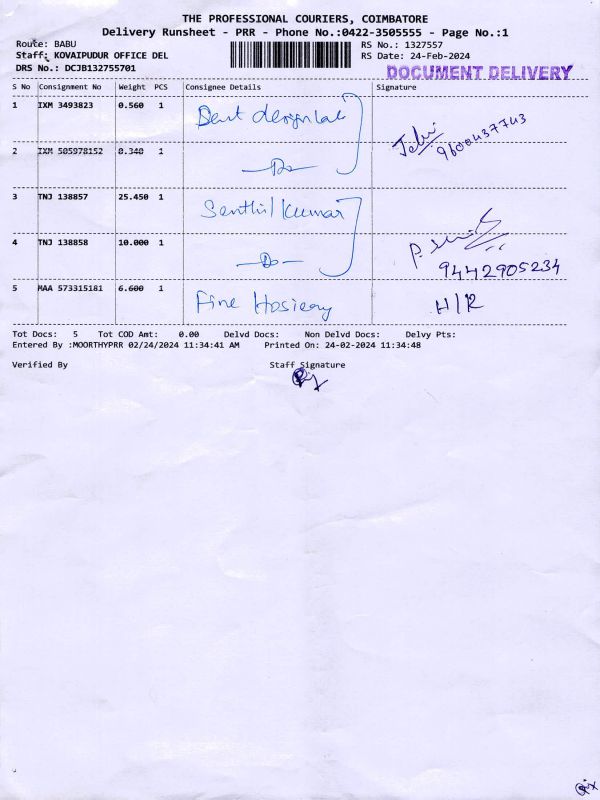 THE PROFESSIONAL COURIERS, COIMBATORE
Delivery Runsheet - PRR - Phone No.:0422-3505555 - Page No.:1
Route: BABU RS No.: 1327557
Staff: KOVAIPUDUR OFFICE DEL RS Date: 24-Feb-2024
DRS No.: DCJB132755701 DOCUMENT DELIVERY
S No Consignment No Weight PCS Consignee Details Signature
1 IXM 3493823 0.560 1 Dent designlab
9600437743
2 IXM 505978152 0.340 1 —Do—
3 TNJ 138857 25.450 1 Senthil Kumar
4 TNJ 138858 10.000 1 —Do— 9442905234
5 MAA 573315181 6.600 1 Fine Hosiery H/R
Tot Docs: 5 Tot COD Amt: 0.00 Delvd Docs: Non Delvd Docs: Delvy Pts:
Entered By :MOORTHYPRR 02/24/2024 11:34:41 AM Printed On: 24-02-2024 11:34:48
Verified By Staff Signature